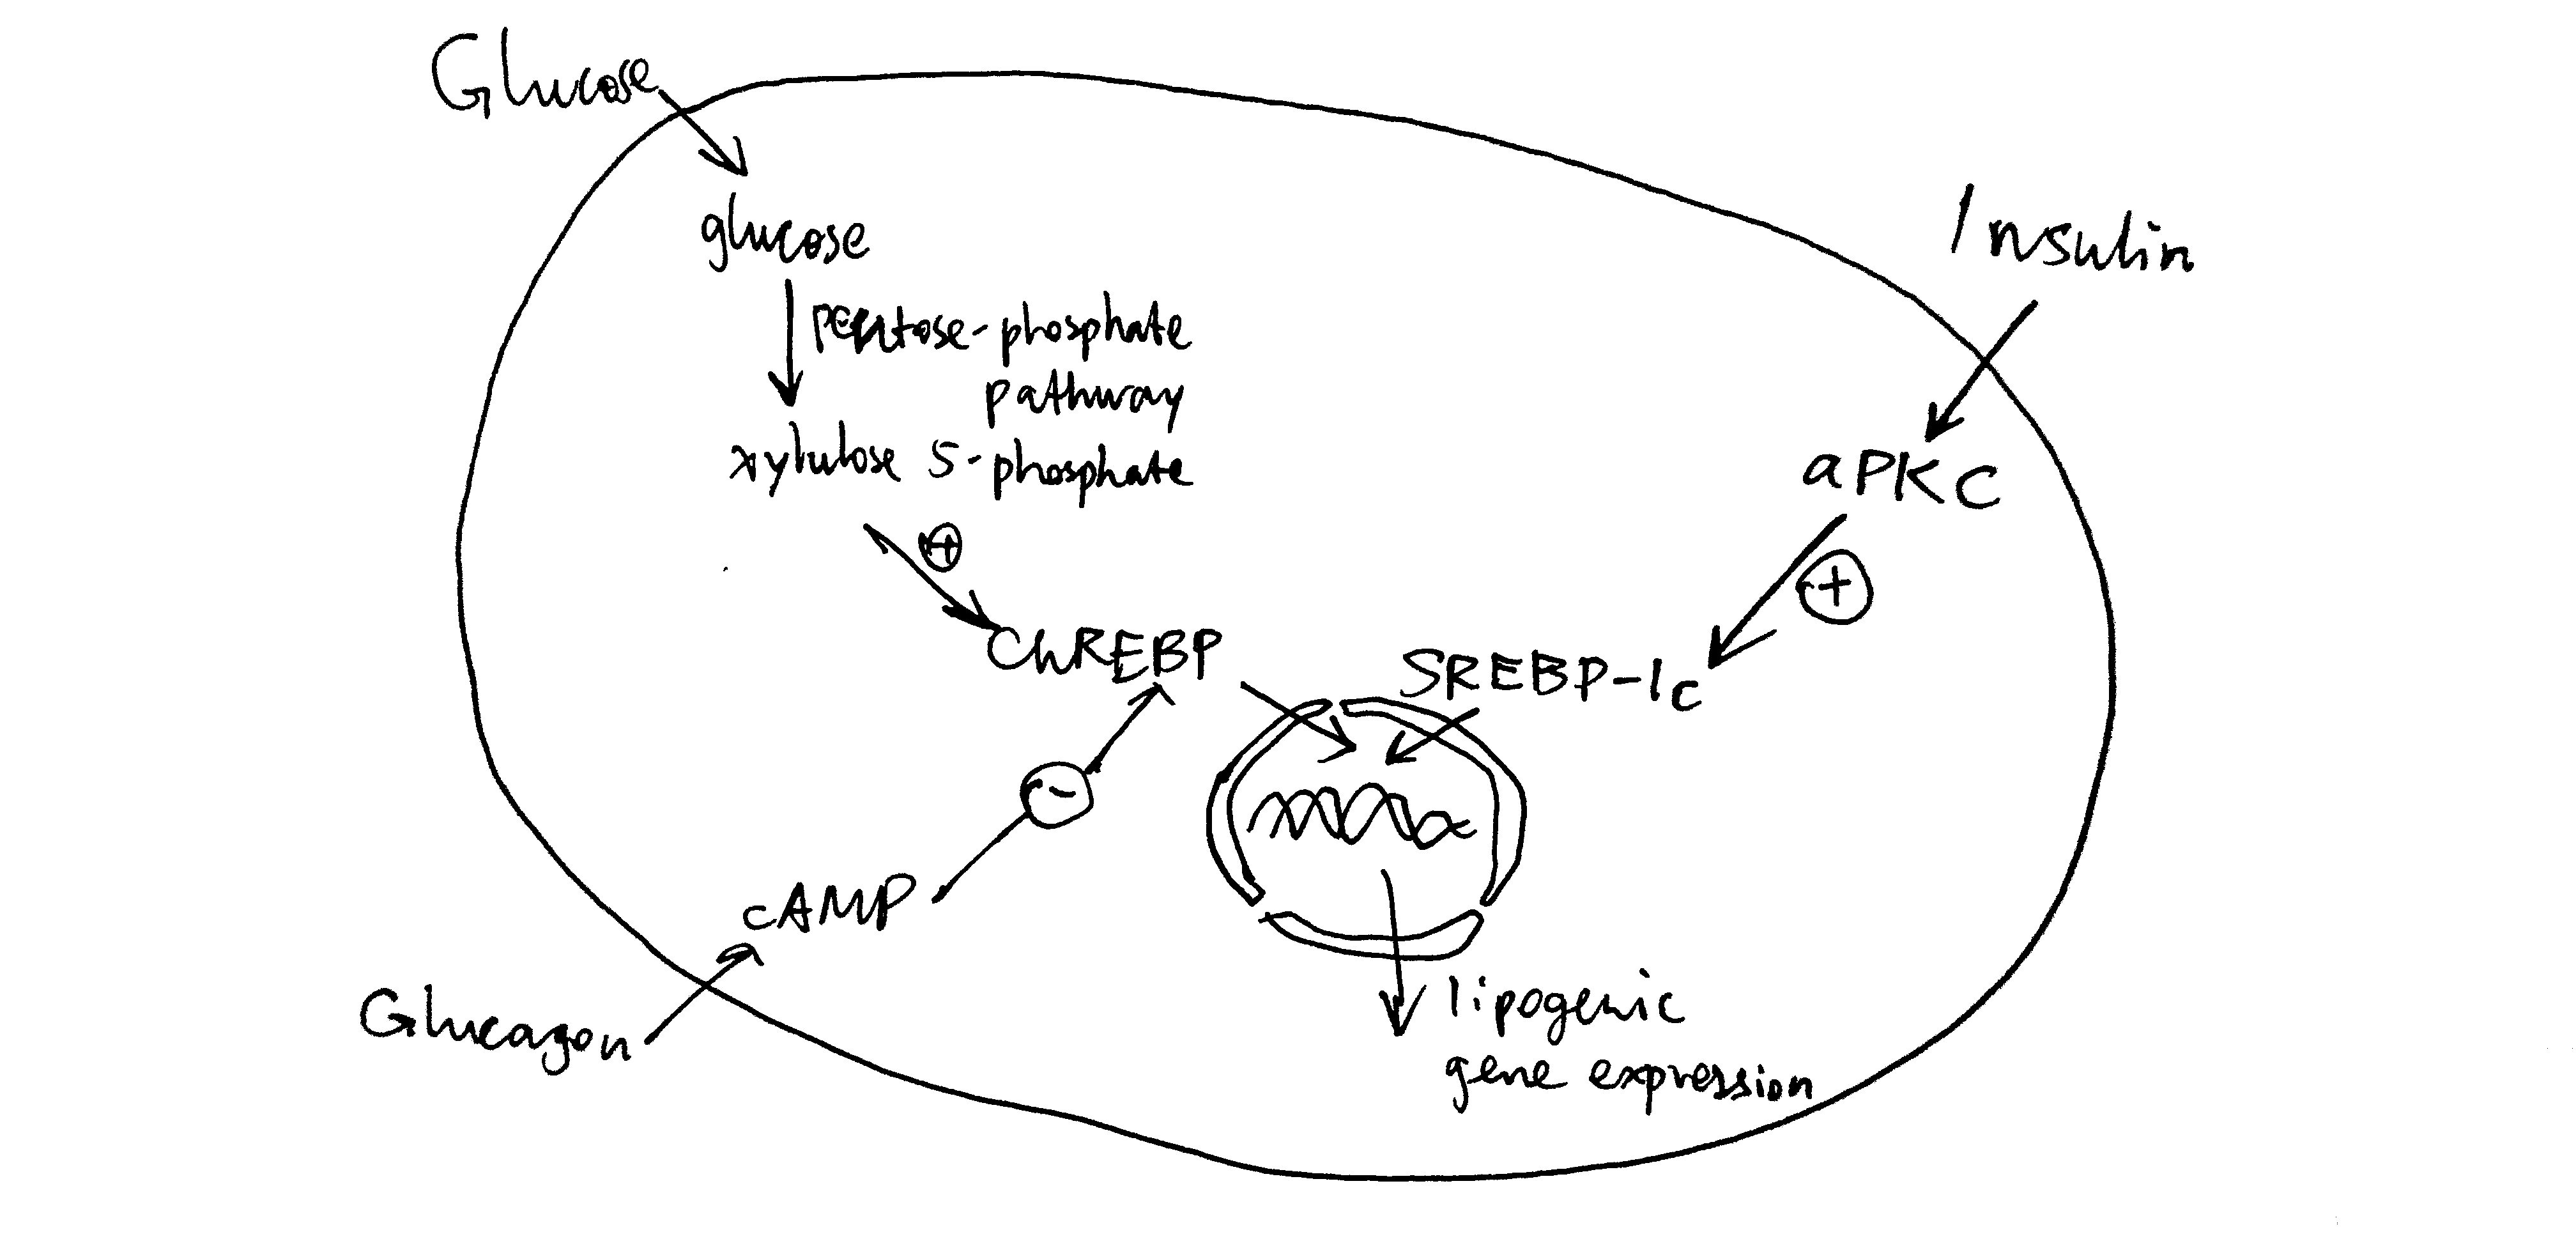 Glucose
glucose
pentose-phosphate
pathway
xylulose 5-phosphate
⊕
ChREBP
Insulin
aPKC
⊕
SREBP-1c
⊖
cAMP
Glucagon
lipogenic
gene expression